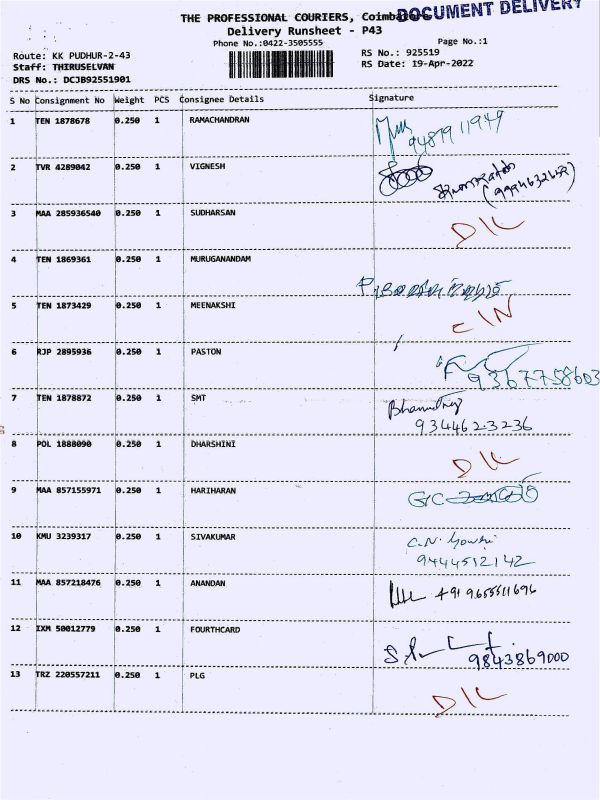 DOCUMENT DELIVERY
THE PROFESSIONAL COURIERS, Coimbatore
Delivery Runsheet - P43
Phone No.:0422-3505555
Page No.:1
Route: KK PUDHUR-2-43
RS No.: 925519
Staff: THIRUSELVAN
RS Date: 19-Apr-2022
DRS No.: DCJB92551901
S No Consignment No Weight PCS Consignee Details Signature
1 TEN 1878678 0.250 1 RAMACHANDRAN
9487911949
2 TVR 4289042 0.250 1 VIGNESH
3 MAA 285936540 0.250 1 SUDHARSAN
D/L
4 TEN 1869361 0.250 1 MURUGANANDAM
5 TEN 1873429 0.250 1 MEENAKSHI
C IN
6 RJP 2895936 0.250 1 PASTON
9367758603
7 TEN 1878872 0.250 1 SMT
9344623236
8 POL 1888090 0.250 1 DHARSHINI
D/L
9 MAA 857155971 0.250 1 HARIHARAN
10 KMU 3239317 0.250 1 SIVAKUMAR
C.N. Gowri
9444512142
11 MAA 857218476 0.250 1 ANANDAN
+91 9655511696
12 IXM 50012779 0.250 1 FOURTHCARD
9843869000
13 TRZ 220557211 0.250 1 PLG
D/L